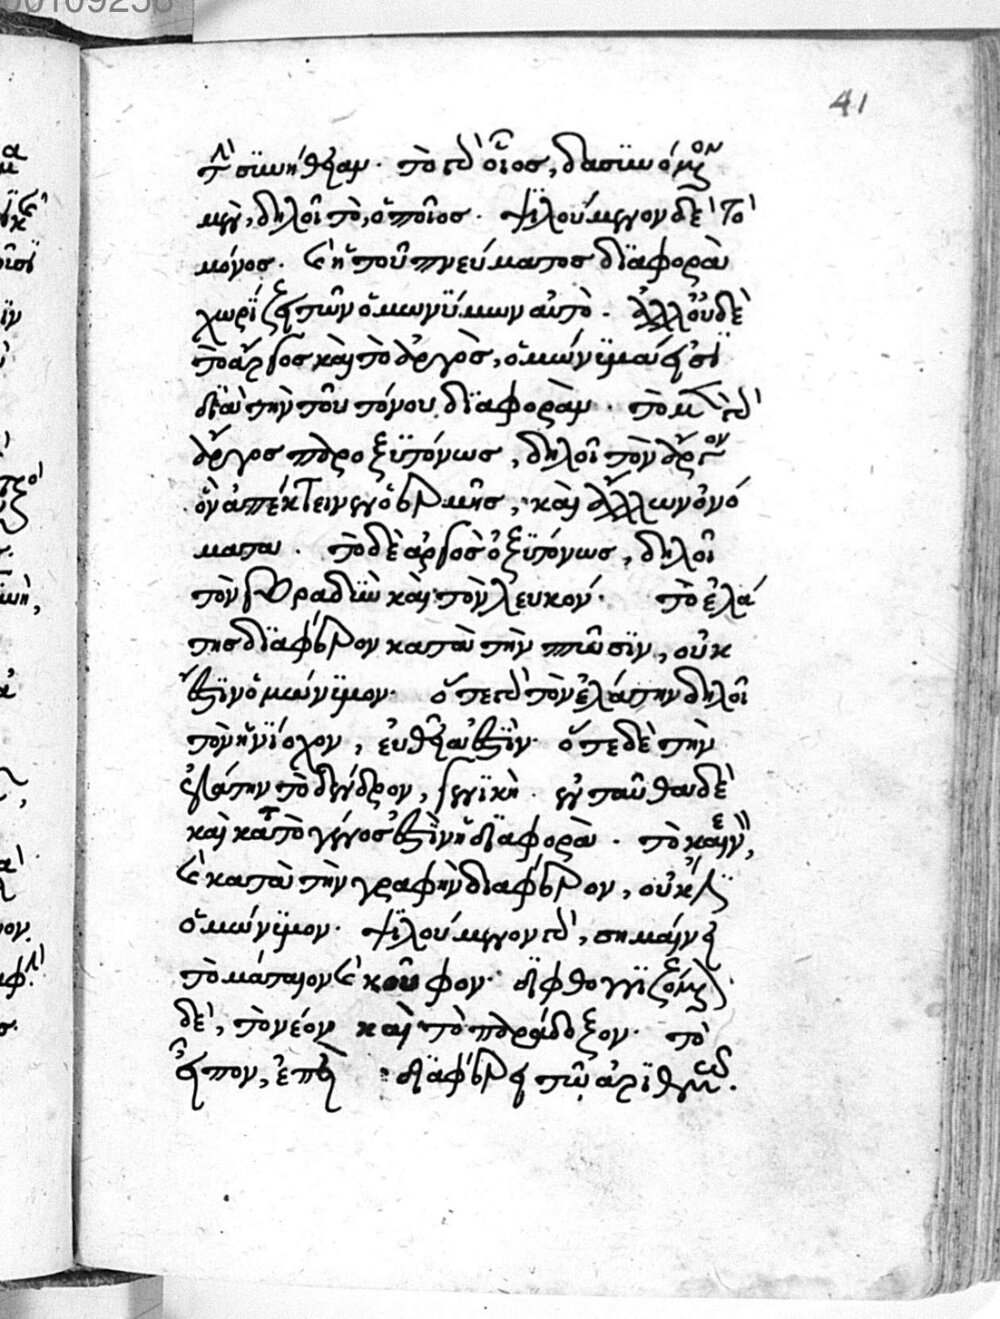 41
τὴν συνήθειαν. τὸ δ' οἷος, δασυνόμενον
μὲν, δηλοῖ τὸ, ὁποῖος. ψιλούμενον δὲ τὸ
μόνος. καὶ ἡ τοῦ πνεύματος διαφορὰ
χωρίζει τῶν ὁμωνύμων αὐτό. ἀλλ' οὐδὲ
τὸ ἄργος καὶ τὸ ἀργὸς, ὁμώνυμα εἰσὶ
διὰ τὴν τοῦ τόνου διαφοράν. τὸ μὲν
ἄργος παροξυτόνως, δηλοῖ τὸν ἄργον
ὃν ἀπέκτεινεν ὁ ἑρμῆς, καὶ ἄλλων ὀνό
ματα. τὸ δὲ ἀργὸς ὀξυτόνως, δηλοῖ
τὸν βραδὺν καὶ τὸν λευκόν. τὸ ἐλά
της διάφορον κατὰ τὴν πτῶσιν, οὐκ
ἔστιν ὁμώνυμον. ὅτε δ' τὸν ἐλάτην δηλοῖ
τὸν ἡνίοχον, εὐθεῖα ἐστίν. ὅτε δὲ τὴν
ἐλάτην τὸ δένδρον, γενικὴ ἐνταῦθα δὲ
καὶ κατὰ τὸ γένος ἐστὶν ἡ διαφορά. τὸ καινὸν,
καὶ κατὰ τὴν γραφὴν διάφορον, οὐκ ἔστιν
ὁμώνυμον. ψιλούμενον δ', σημαίνει
τὸ μάταιον καὶ κοῦφον. διφθογγιζόμενον
δὲ, τὸ νέον καὶ τὸ παράδοξον. τὸ
εἶπον, ἐπεὶ διαφέρει τῷ ἀριθμῷ.